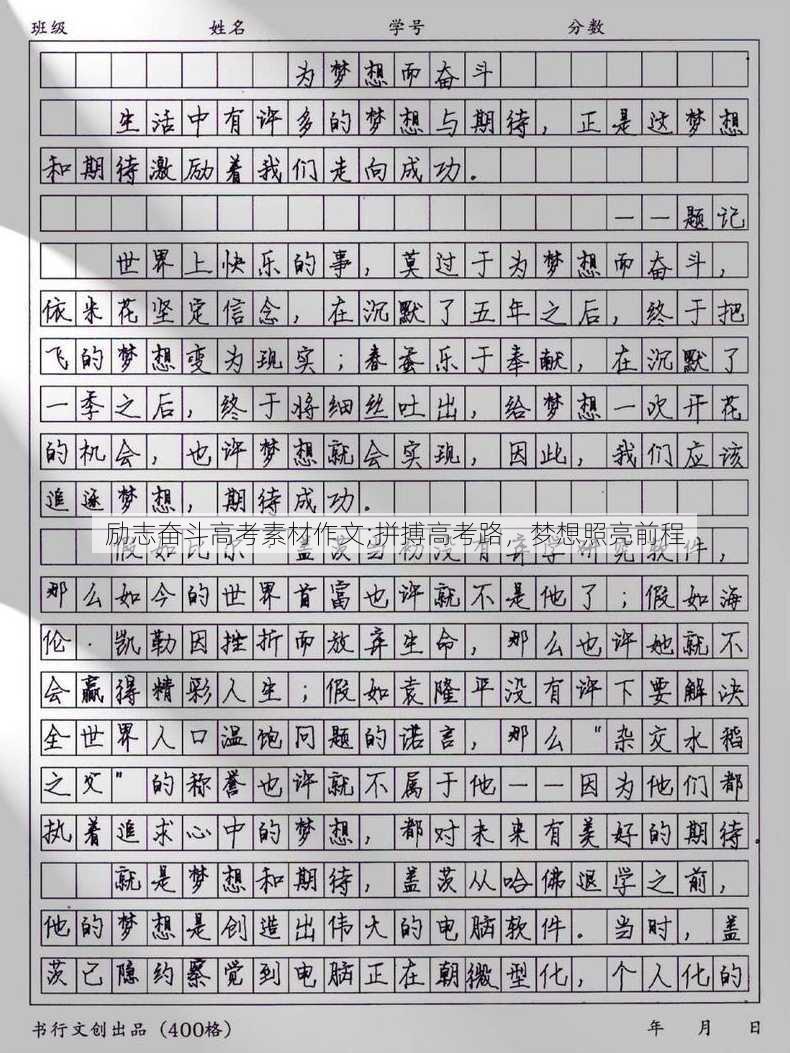 班级 姓名 学号 分数
为梦想而奋斗
生活中有许多的梦想与期待，正是这梦想
和期待激励着我们走向成功。
——题记
世界上快乐的事，莫过于为梦想而奋斗，
依米花坚定信念，在沉默了五年之后，终于把
飞的梦想变为现实；春蚕乐于奉献，在沉默了
一季之后，终于将细丝吐出，给梦想一次开花
的机会，也许梦想就会实现，因此，我们应该
追逐梦想，期待成功。
励志奋斗高考素材作文;拼搏高考路，梦想照亮前程
假如比尔·盖茨当初没有弃学研究软件，
那么如今的世界首富也许就不是他了；假如海
伦·凯勒因挫折而放弃生命，那么也许她就不
会赢得精彩人生；假如袁隆平没有许下要解决
全世界人口温饱问题的诺言，那么“杂交水稻
之父”的称誉也许就不属于他——因为他们都
执着追求心中的梦想，都对未来有美好的期待。
就是梦想和期待，盖茨从哈佛退学之前，
他的梦想是创造出伟大的电脑软件。当时，盖
茨已隐约察觉到电脑正在朝微型化，个人化的
书行文创出品（400格） 年 月 日